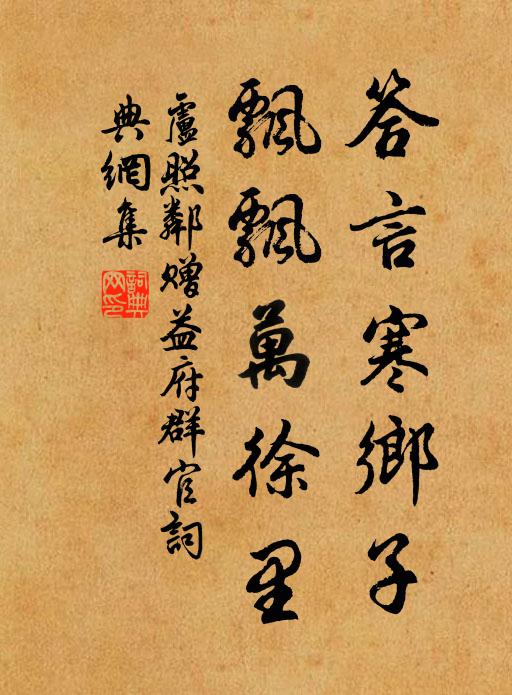 答言寒鄉子
飄飄萬徐里
盧照鄰贈益府群官詞
典網集
詞典
网印